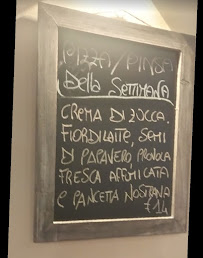 PIZZA/PINSA
Della Settimana
CREMA DI ZUCCA.
FIORDILATTE, SEMI
DI PAPAVERO, PROVOLA
FRESCA AFFUMICATA
E PANCETTA NOSTRANA
€14